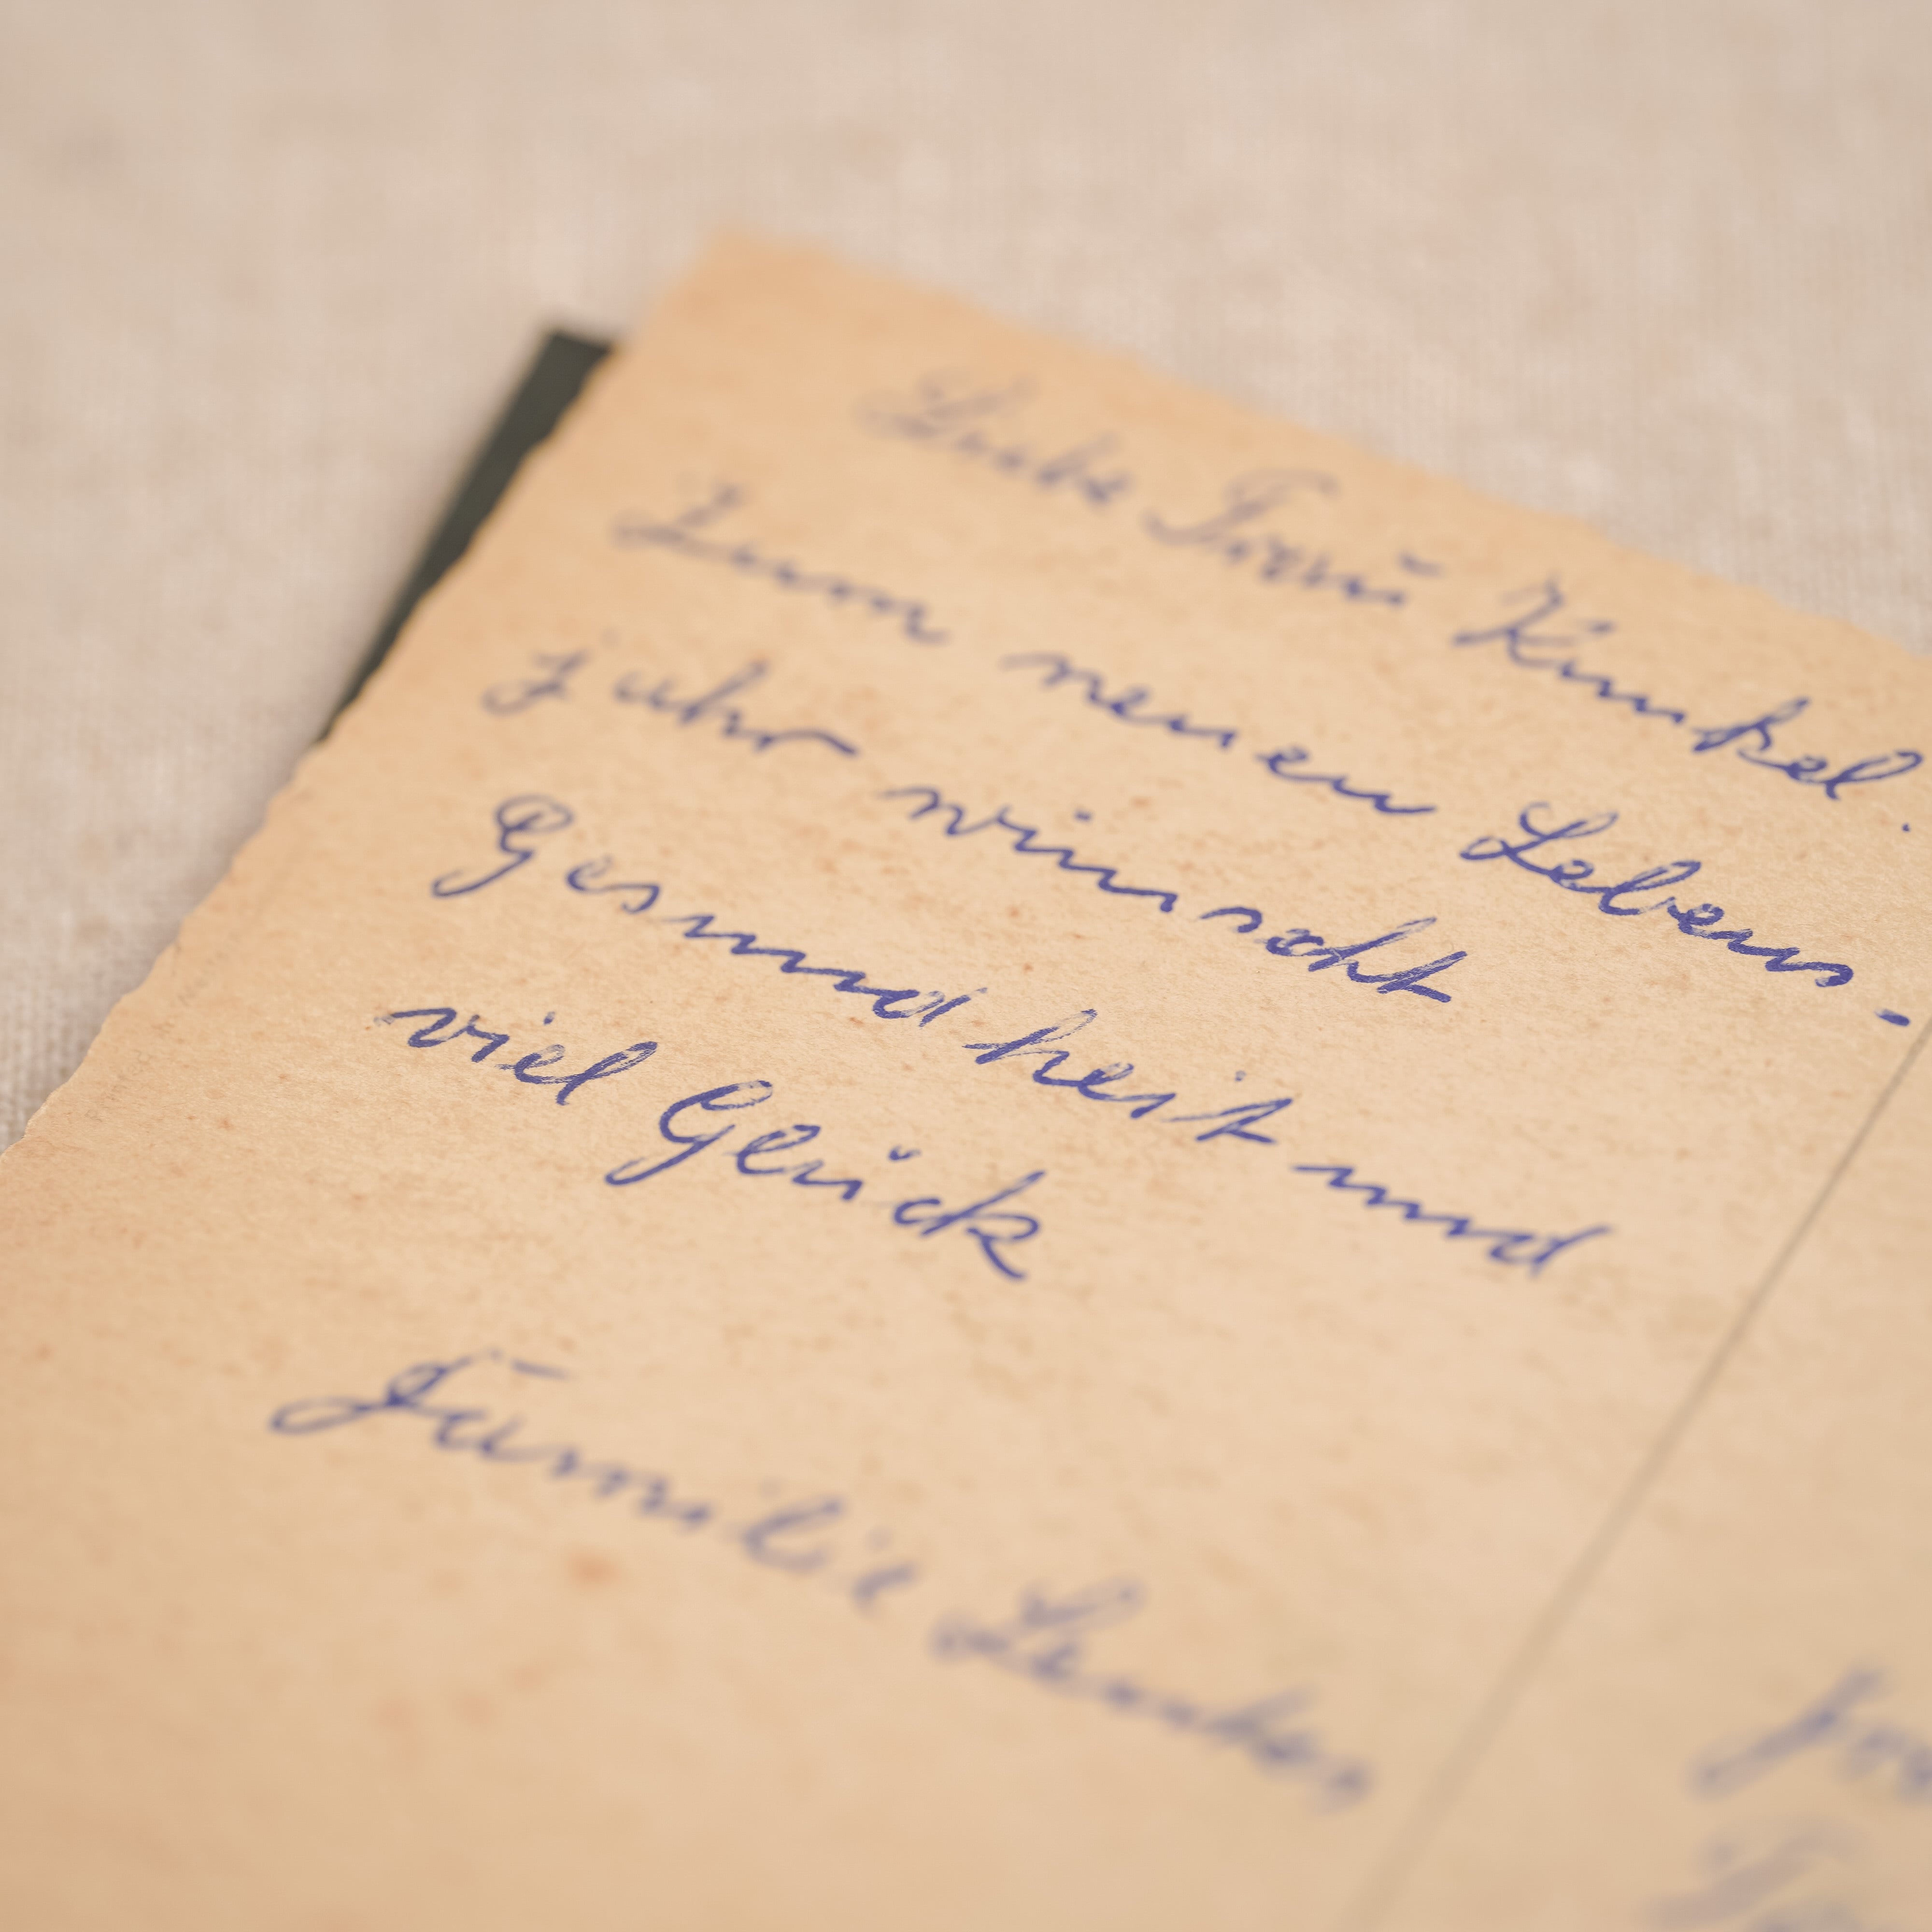 Liebe Frau Kunkel
Zum neuen Lebens-
jahr wünscht
Gesundheit und
viel Glück
Familie